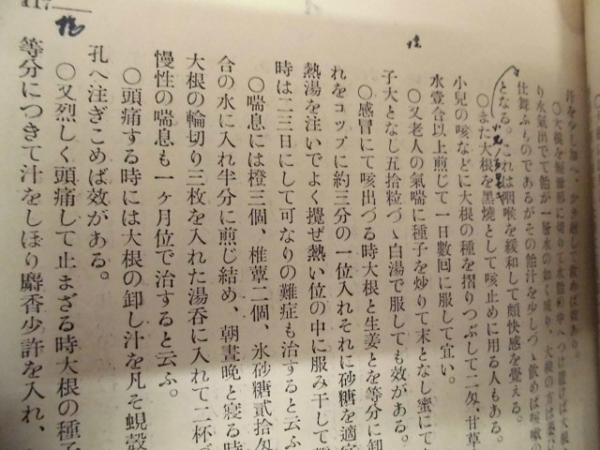 117
許を少し加へ
り水氣出でて飴が一層水の如く成り、大根の方は
仕舞ふものであるがその飴汁を少しづゝ飮めば咳嗽の
となる。これは咽喉を緩和して頗快感を覺える。
〇また大根を黑燒として咳止めに用る人もある。
小兒の咳などに大根の種を摺りつぶして二匁、甘草
水壹合以上煎じて一日數回に服して宜い。
〇又老人の氣喘に種子を炒りて末となし蜜にて
子大となし五拾粒づゝ白湯で服しても效がある。
〇感冒にて咳出づる時大根と生姜とを等分に卸
れをコップに約三分の一位入れそれに砂糖を適宜
熱湯を注いでよく攪ぜ熱い位の中に服み干して
時は二三日にして可なりの難症も治すると云ふ
〇喘息には橙三個、椎蕈二個、氷砂糖貳拾匁
合の水に入れ半分に煎じ結め、朝晝晩と寢る時
大根の輪切り三枚を入れた湯呑に入れて二杯づ
慢性の喘息も一ヶ月位で治すると云ふ。
〇頭痛する時には大根の卸し汁を凡そ蜆殼
孔へ注ぎこめば效がある。
〇又烈しく頭痛して止まざる時大根の種子
等分につきて汁をしほり麝香少許を入れ、